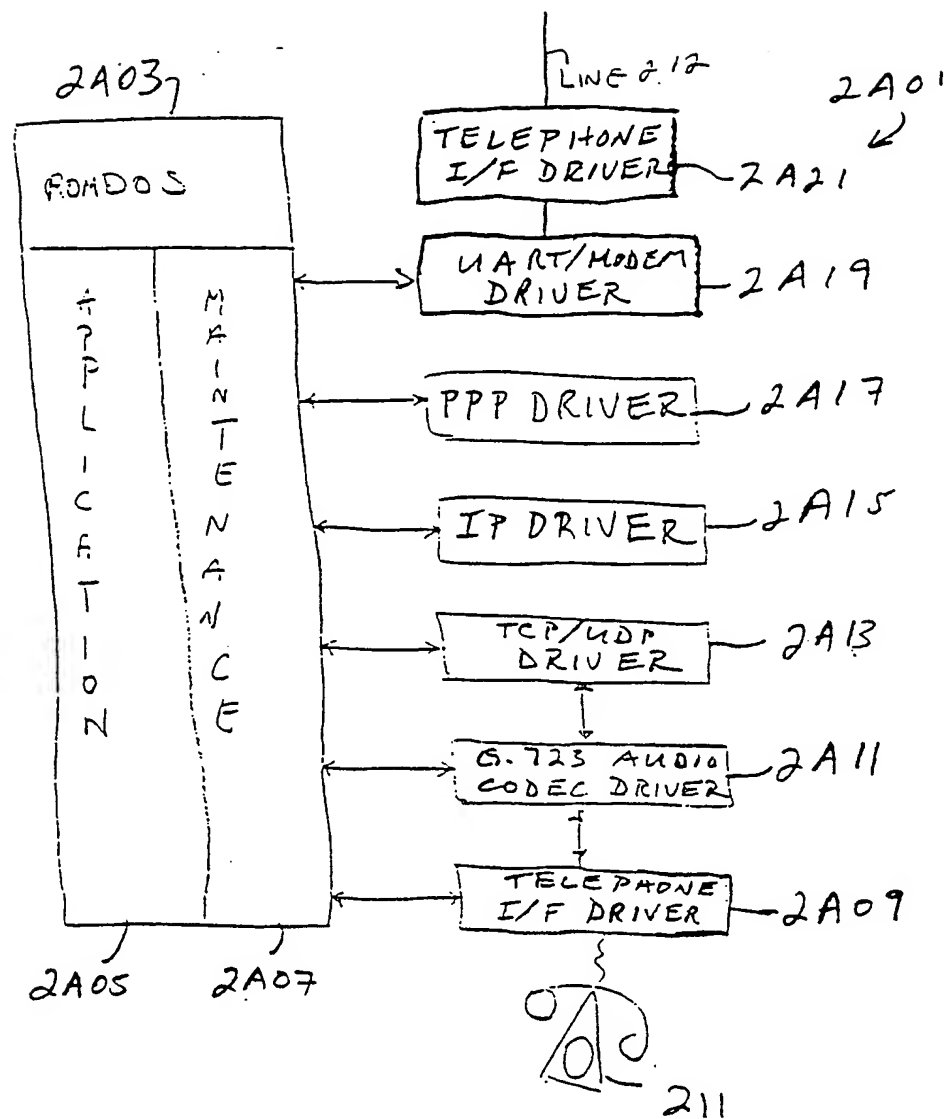 2A03
LINE 2.12
2A01
TELEPHONE
I/F DRIVER
2A21
ROMDOS
UART/MODEM
DRIVER
2A19
APPLICATION
MAINTENANCE
PPP DRIVER
2A17
IP DRIVER
2A15
TCP/UDP
DRIVER
2A13
G.723 AUDIO
CODEC DRIVER
2A11
TELEPHONE
I/F DRIVER
2A09
2A05
2A07
211